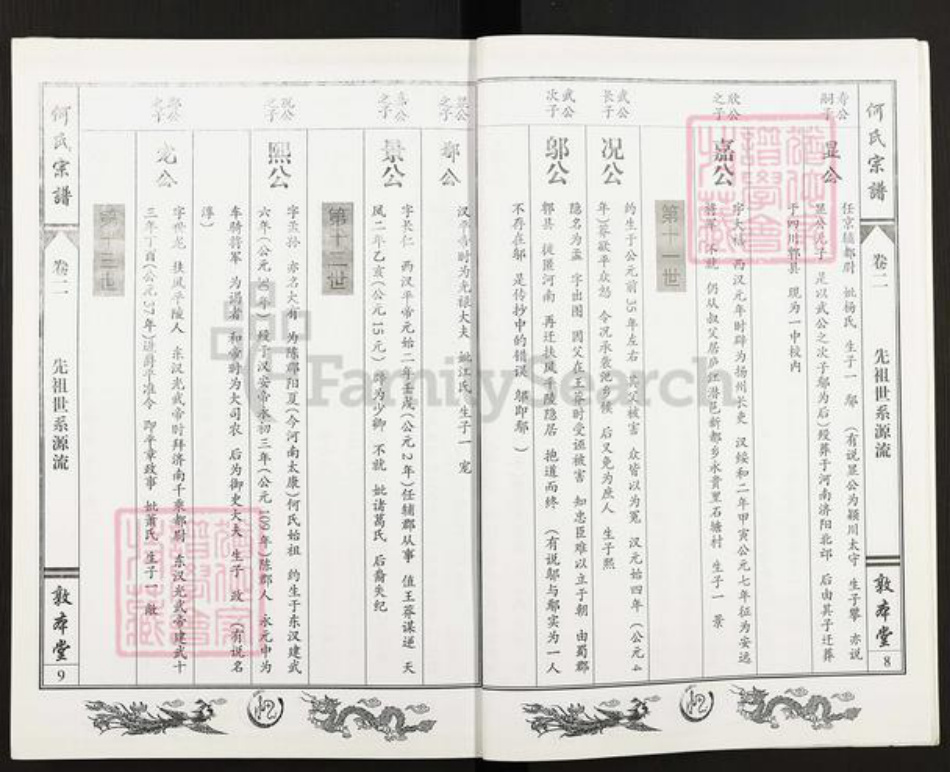 何氏宗谱
卷二
先祖世系源流
敦本堂
8
寿公
嗣子
显公
任京辅都尉 妣杨氏 生子一 鄢 （有说显公为颍川太守 生子攀 亦说
显公无子 是以武公之次子邬为后）殁葬于河南济阳北邙 后由其子迁葬
于四川郫县 现为一中校内
欣公
之子
嘉公
字大福 西汉元年时辟为扬州长史 汉绥和二年甲寅公元七年征为安远
将军 不就 仍从叔父居庐江潜邑新都乡永贵里石塘村 生子一 景
第十一世
武公
长子
况公
约生于公元前35年左右 其父被害 众皆以为冤 汉元始四年（公元4
年）莽欲平众怨 令况承袭氾乡候 后又免为庶人 生子熙
武公
次子
邬公
隐名为孟 字出图 因父在王莽时受诬被害 知忠臣难以立于朝 由蜀郡
郫县 徙匿河南 再迁扶风平陵隐居 抱道而终 （有说邬与鄢实为一人
不存在邬 是传抄中的错误 邬即鄢 ）
显公
之子
鄢公
汉平帝时为光禄大夫 妣江氏 生子一 宠
嘉公
之子
景公
字长仁 西汉平帝元始二年壬戌（公元2年）任辅郡从事 值王莽谋逆 天
凤二年乙亥（公元15元）辟为少卿 不就 妣诸葛氏 后裔失纪
第十二世
况公
之子
熙公
字孟孙 亦名大有 为陈郡阳夏（今河南太康）何氏始祖 约生于东汉建武
六年（公元30年）殁于汉安帝永初三年（公元109年）陈郡人 永元中为
车骑将军 为谒者 和帝时为大司农 后为御史大夫 生子 政 （有说名
淳）
鄢公
之子
宠公
字世龙 扶风平陵人 东汉光武帝时拜济南千乘都尉 东汉光武帝建武十
三年丁酉（公元37年）进爵平准令 即平章政事 妣萧氏 生子一 敞
第十三世
何氏宗谱
卷二
先祖世系源流
敦本堂
9
FamilySearch